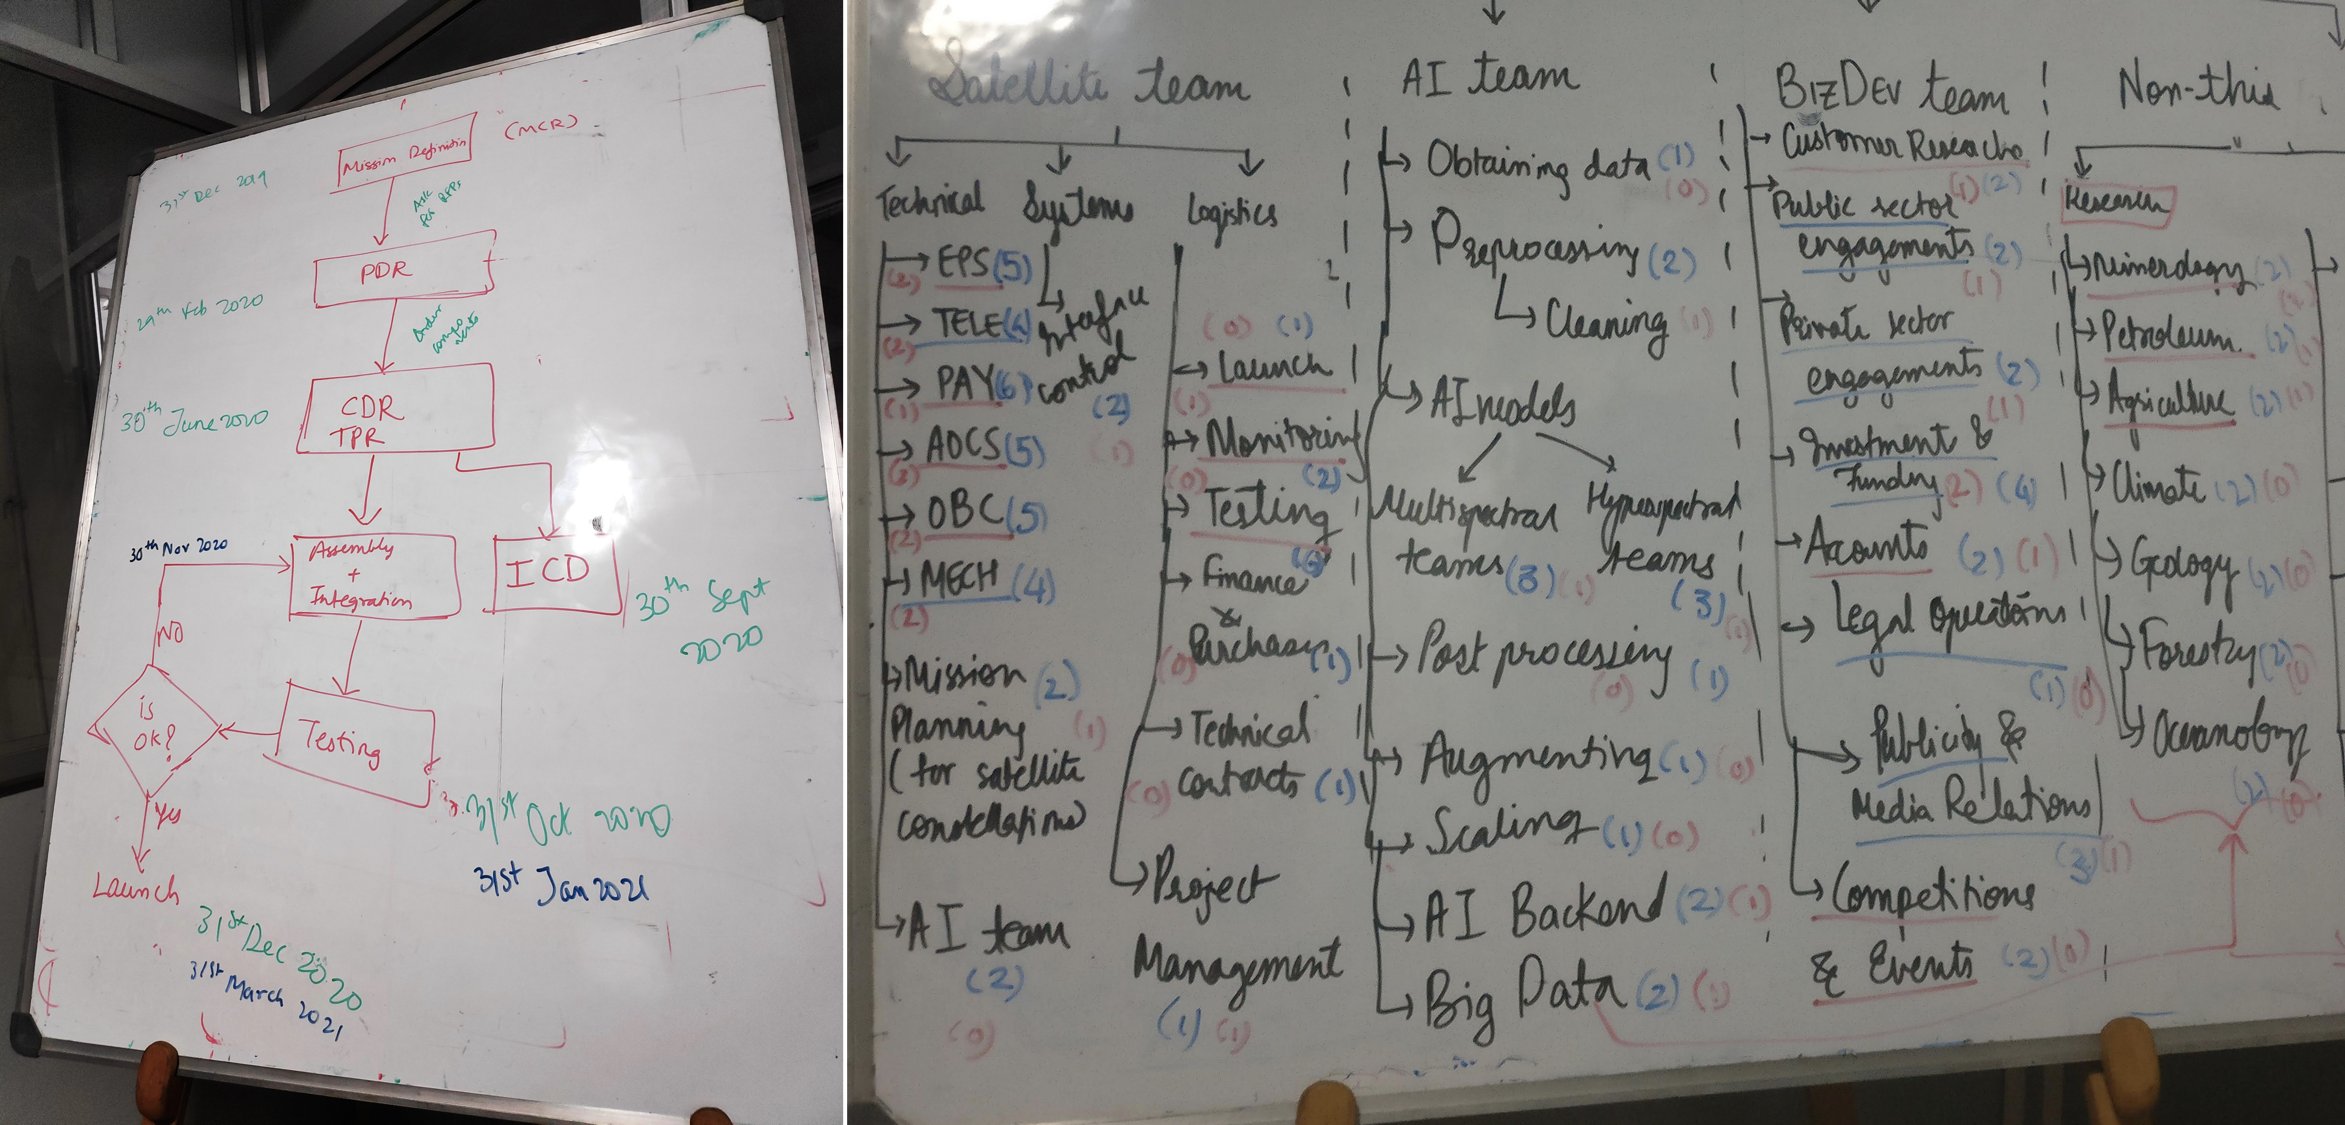 (MCR)
Mission Definition
31st Dec 2019
Ask
for RFPs
PDR
29th Feb 2020
Order
compo
nents
CDR
TPR
30th June 2020
30th Nov 2020
Assembly
+
Integration
ICD
30th Sept
2020
NO
is
OK?
Testing
Yes
31st Oct 2020
31st Jan 2021
Launch
31st Dec 2020
31st March 2021
Satellite team
Technical
EPS (5)
(2)
TELE
(2)
PAY (6)
(1)
ADCS (5)
OBC (5)
(2)
MECH (4)
(2)
Mission (2)
Planning (1)
(for satellite
constellations)
AI team
(2)
(0)
Systems
Interface
control
(2)
(1)
Logistics
(0) (1)
Launch
(1)
Monitoring
(0) (2)
Testing
Finance
&
Purchases (1)
(0)
Technical
(0) contracts (1)
Project
Management
(1) (1)
AI team
Obtaining data (1)
(0)
Preprocessing (2)
Cleaning (1)
AI models
Multispectral
teams (3) (1)
Hyperspectral
teams
(3) (1)
Post processing
(0) (1)
Augmenting (1) (0)
Scaling (1) (0)
AI Backend (2) (1)
Big Data (2) (1)
BIZDEV team
Customer Research
(1) (2)
Public sector
engagements (2)
(1)
Private sector
engagements (2)
(1)
Investment &
Funding (2) (4)
Accounts (2) (1)
Legal Operations
(1) (0)
Publicity &
Media Relations
(3) (1)
Competitions
& Events (2) (0)
Non-this
Research
Numerology (2)
Petroleum (2) (1)
Agriculture (2) (1)
Climate (2) (0)
Geology (2) (0)
Forestry (2) (0)
Oceanology
(2) (0)